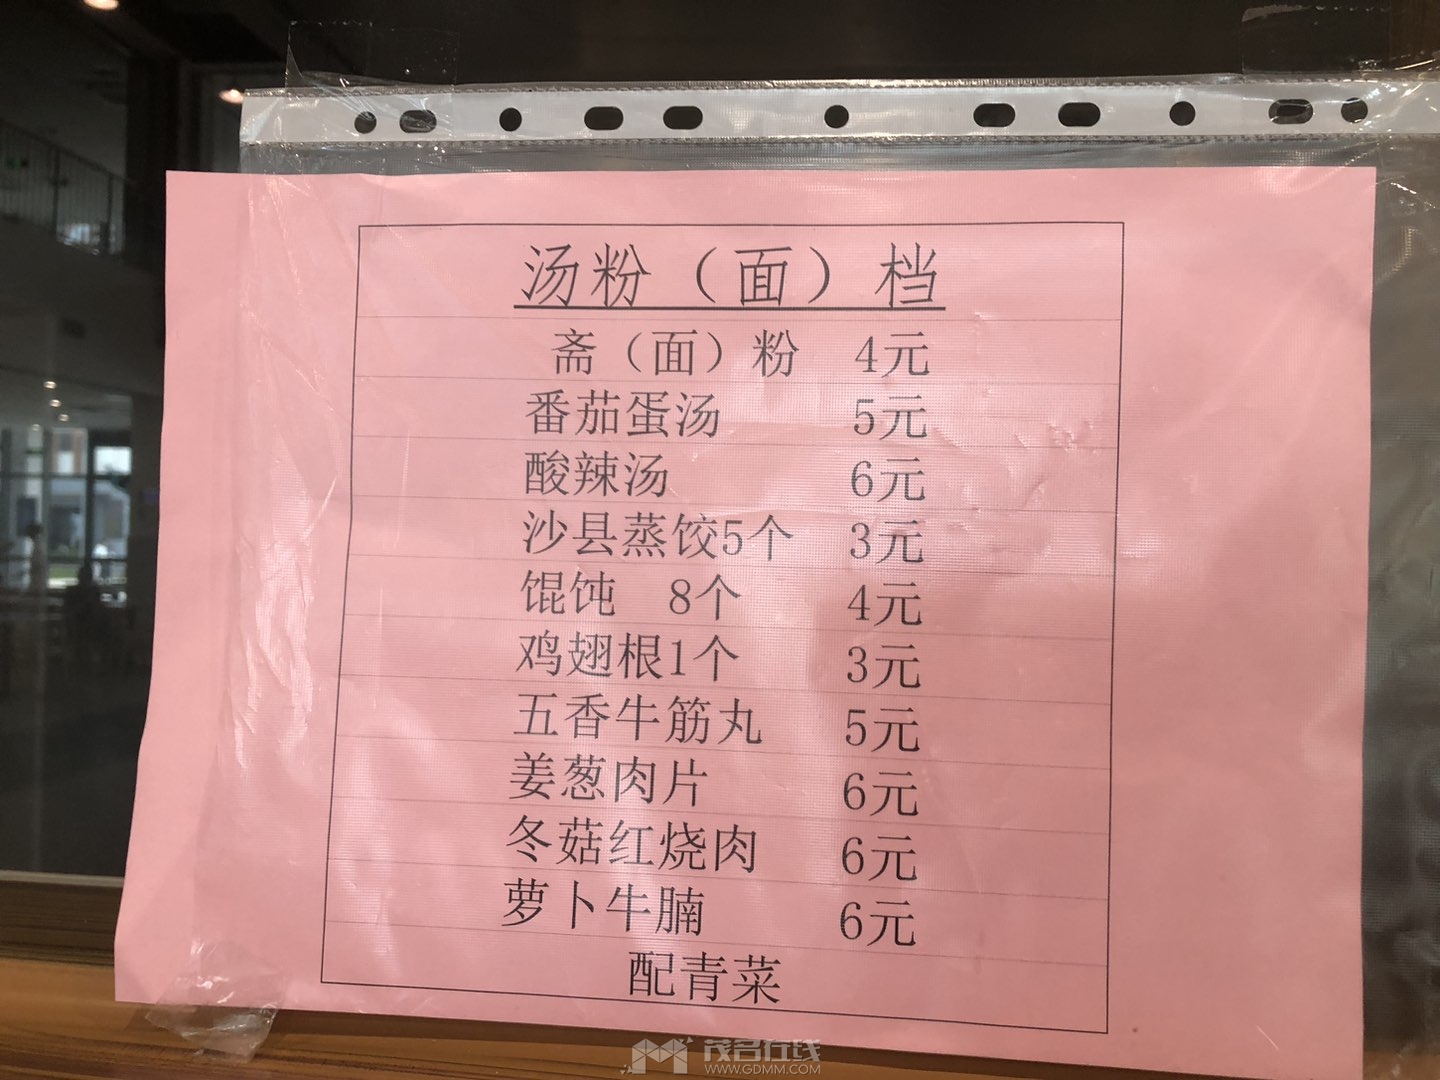 汤粉（面）档
斋（面）粉 4元
番茄蛋汤 5元
酸辣汤 6元
沙县蒸饺5个 3元
馄饨 8个 4元
鸡翅根1个 3元
五香牛筋丸 5元
姜葱肉片 6元
冬菇红烧肉 6元
萝卜牛腩 6元
配青菜
茂名在线
WWW.GDMM.COM